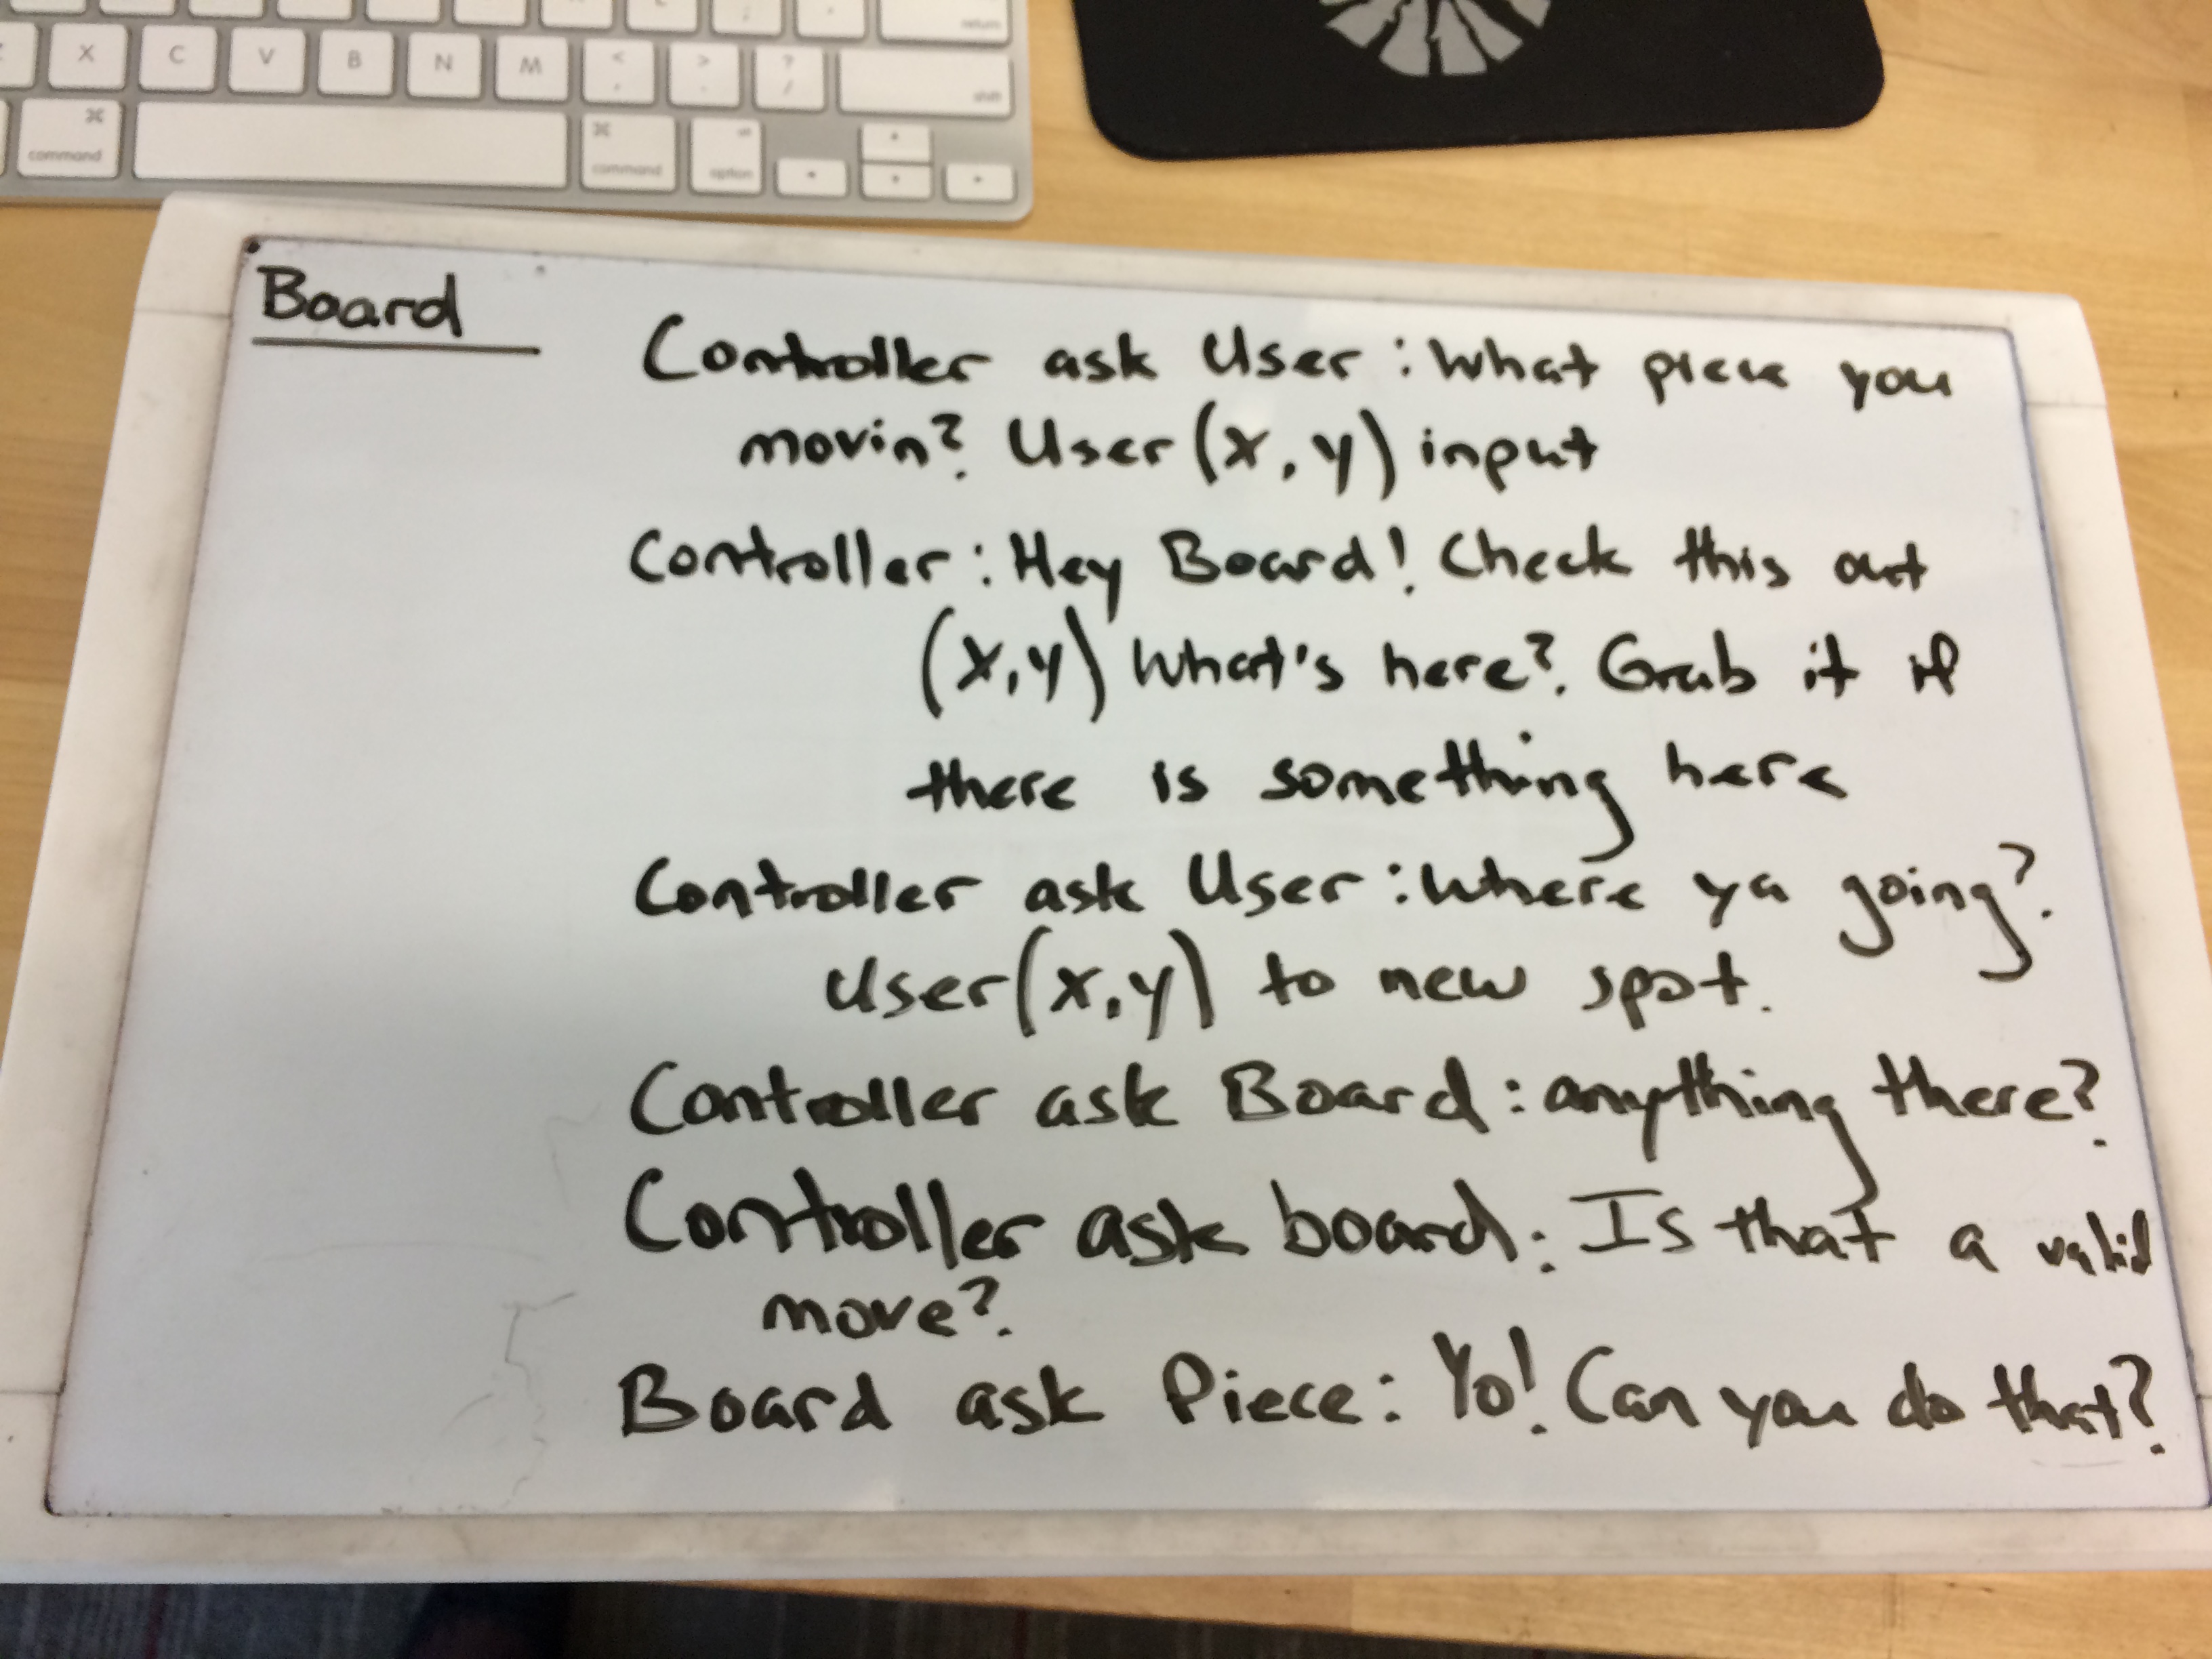 Board
Controller ask User: What piece you
movin? User (x, y) input
Controller: Hey Board! Check this out
(x, y) What's here? Grab it if
there is something here
Controller ask User: Where ya going?
User (x, y) to new spot.
Controller ask Board: anything there?
Controller ask board: Is that a valid
move?
Board ask Piece: Yo! Can you do that?
command
X
C
V
B
N
M
<
,
>
.
?
/
command
option
alt
shift
return